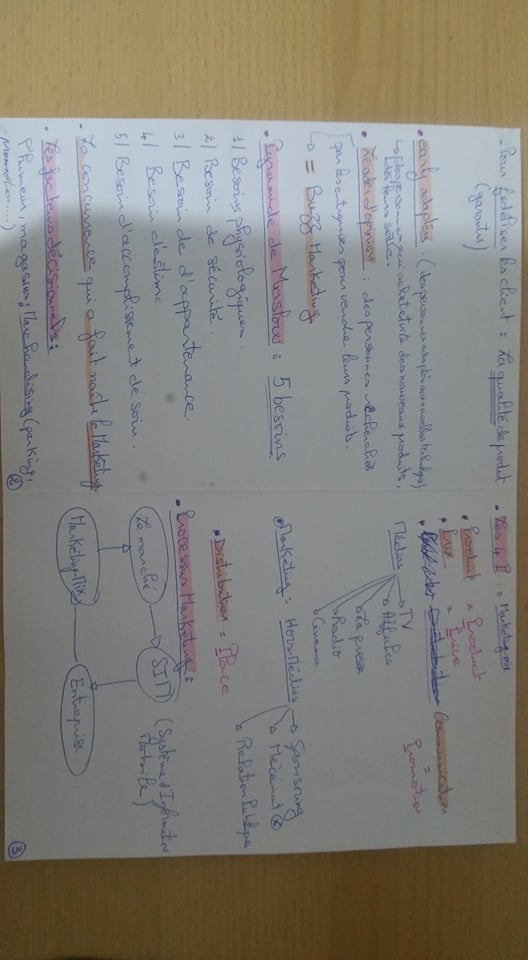 - Pour fidéliser les client : La qualité de produit
(garantir)
• early adapters : (des personnes adaptés aux nouvelles technologies)
↳ des personnes qui achètent des nouveaux produits,
• Leader d'opinion : des personnes recherchés
par les entreprises pour vendre leurs produits.
↳ = Buzz Marketing
• Pyramide de Maslow : 5 besoins
1/ Besoins physiologiques.
2/ Besoin de sécurité.
3/ Besoin de d'appartenance.
4/ Besoin d'éstime
5/ Besoin d'accomplissement de soin.
- La concurrence qui a fait naître le Marketing.
- Les facteurs décisionnels :
l'humeur, magasins : Marchandising (parking,
promotion....)
2
• Les 4 P : = Marketing-mix
• Produit = Product
• Prix = Price
• Communication
= Promotion
Médias → TV
→ Affiches
→ La presse
→ Radio
→ Cinema
• Marketing : Hors-Médias → Sponsoring
→ Mécénat
→ Relation Publiques
• Distribution = Place
• Processus Marketing :
Le marché → SIM (Système d'Information
Marketing-Mix — Entreprise
3